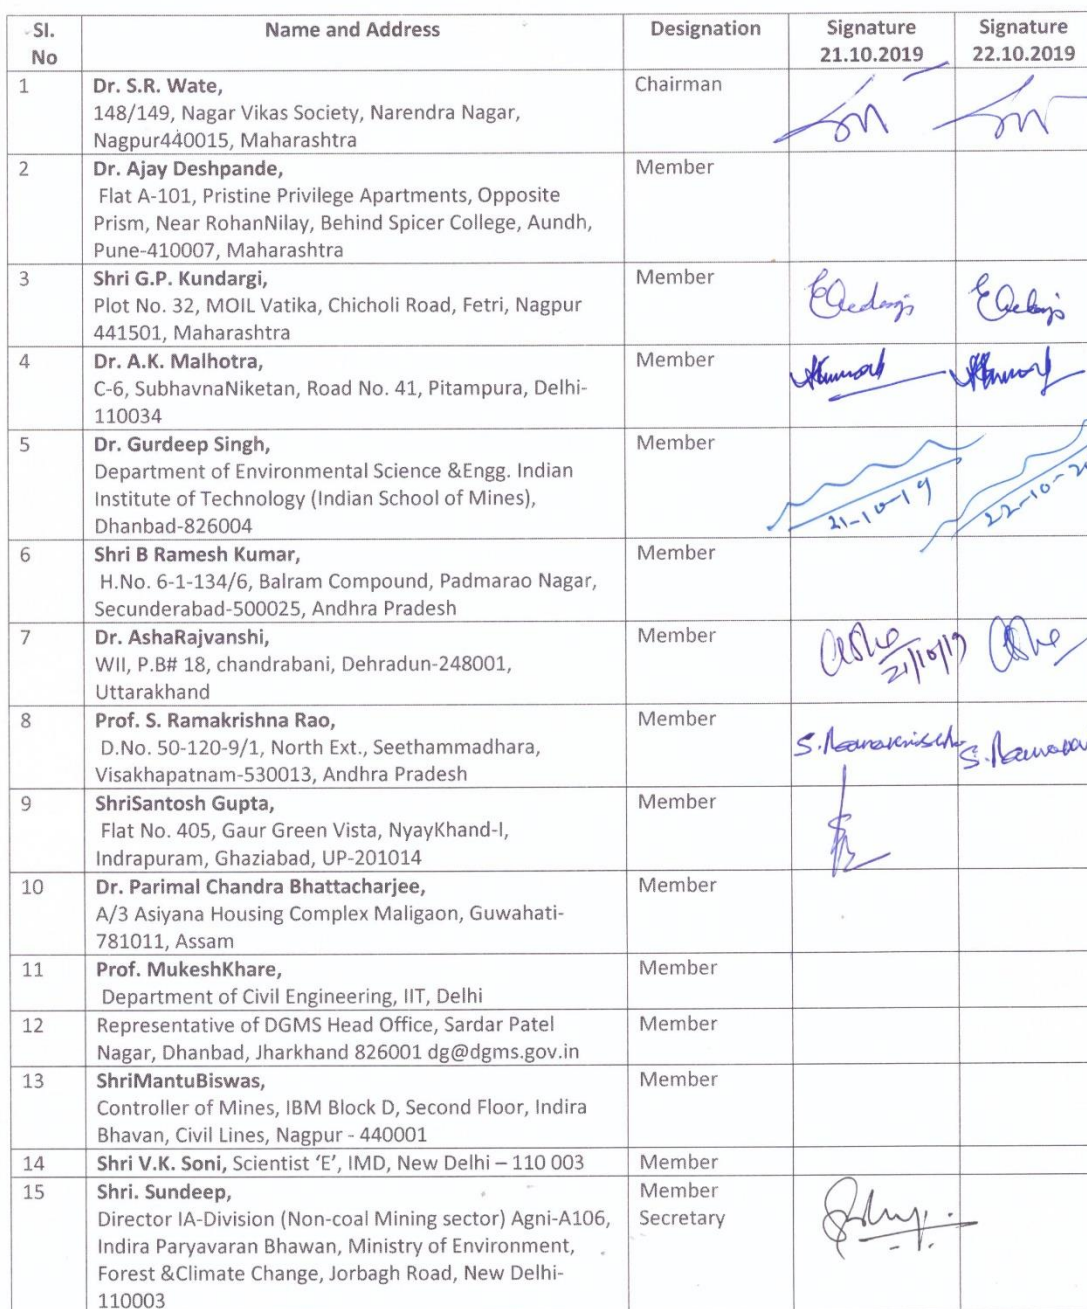 Sl. No Name and Address Designation Signature 21.10.2019 Signature 22.10.2019
1 Dr. S.R. Wate, Chairman
148/149, Nagar Vikas Society, Narendra Nagar,
Nagpur440015, Maharashtra
2 Dr. Ajay Deshpande, Member
Flat A-101, Pristine Privilege Apartments, Opposite
Prism, Near RohanNilay, Behind Spicer College, Aundh,
Pune-410007, Maharashtra
3 Shri G.P. Kundargi, Member
Plot No. 32, MOIL Vatika, Chicholi Road, Fetri, Nagpur
441501, Maharashtra
4 Dr. A.K. Malhotra, Member
C-6, SubhavnaNiketan, Road No. 41, Pitampura, Delhi-
110034
5 Dr. Gurdeep Singh, Member
Department of Environmental Science &Engg. Indian
Institute of Technology (Indian School of Mines),
Dhanbad-826004
21-10-19
22-10-20
6 Shri B Ramesh Kumar, Member
H.No. 6-1-134/6, Balram Compound, Padmarao Nagar,
Secunderabad-500025, Andhra Pradesh
7 Dr. AshaRajvanshi, Member
WII, P.B# 18, chandrabani, Dehradun-248001,
Uttarakhand
21/10/19
8 Prof. S. Ramakrishna Rao, Member
D.No. 50-120-9/1, North Ext., Seethammadhara,
Visakhapatnam-530013, Andhra Pradesh
9 ShriSantosh Gupta, Member
Flat No. 405, Gaur Green Vista, NyayKhand-I,
Indrapuram, Ghaziabad, UP-201014
10 Dr. Parimal Chandra Bhattacharjee, Member
A/3 Asiyana Housing Complex Maligaon, Guwahati-
781011, Assam
11 Prof. MukeshKhare, Member
Department of Civil Engineering, IIT, Delhi
12 Representative of DGMS Head Office, Sardar Patel Member
Nagar, Dhanbad, Jharkhand 826001 dg@dgms.gov.in
13 ShriMantuBiswas, Member
Controller of Mines, IBM Block D, Second Floor, Indira
Bhavan, Civil Lines, Nagpur - 440001
14 Shri V.K. Soni, Scientist ‘E’, IMD, New Delhi – 110 003 Member
15 Shri. Sundeep, Member Secretary
Director IA-Division (Non-coal Mining sector) Agni-A106,
Indira Paryavaran Bhawan, Ministry of Environment,
Forest &Climate Change, Jorbagh Road, New Delhi-
110003